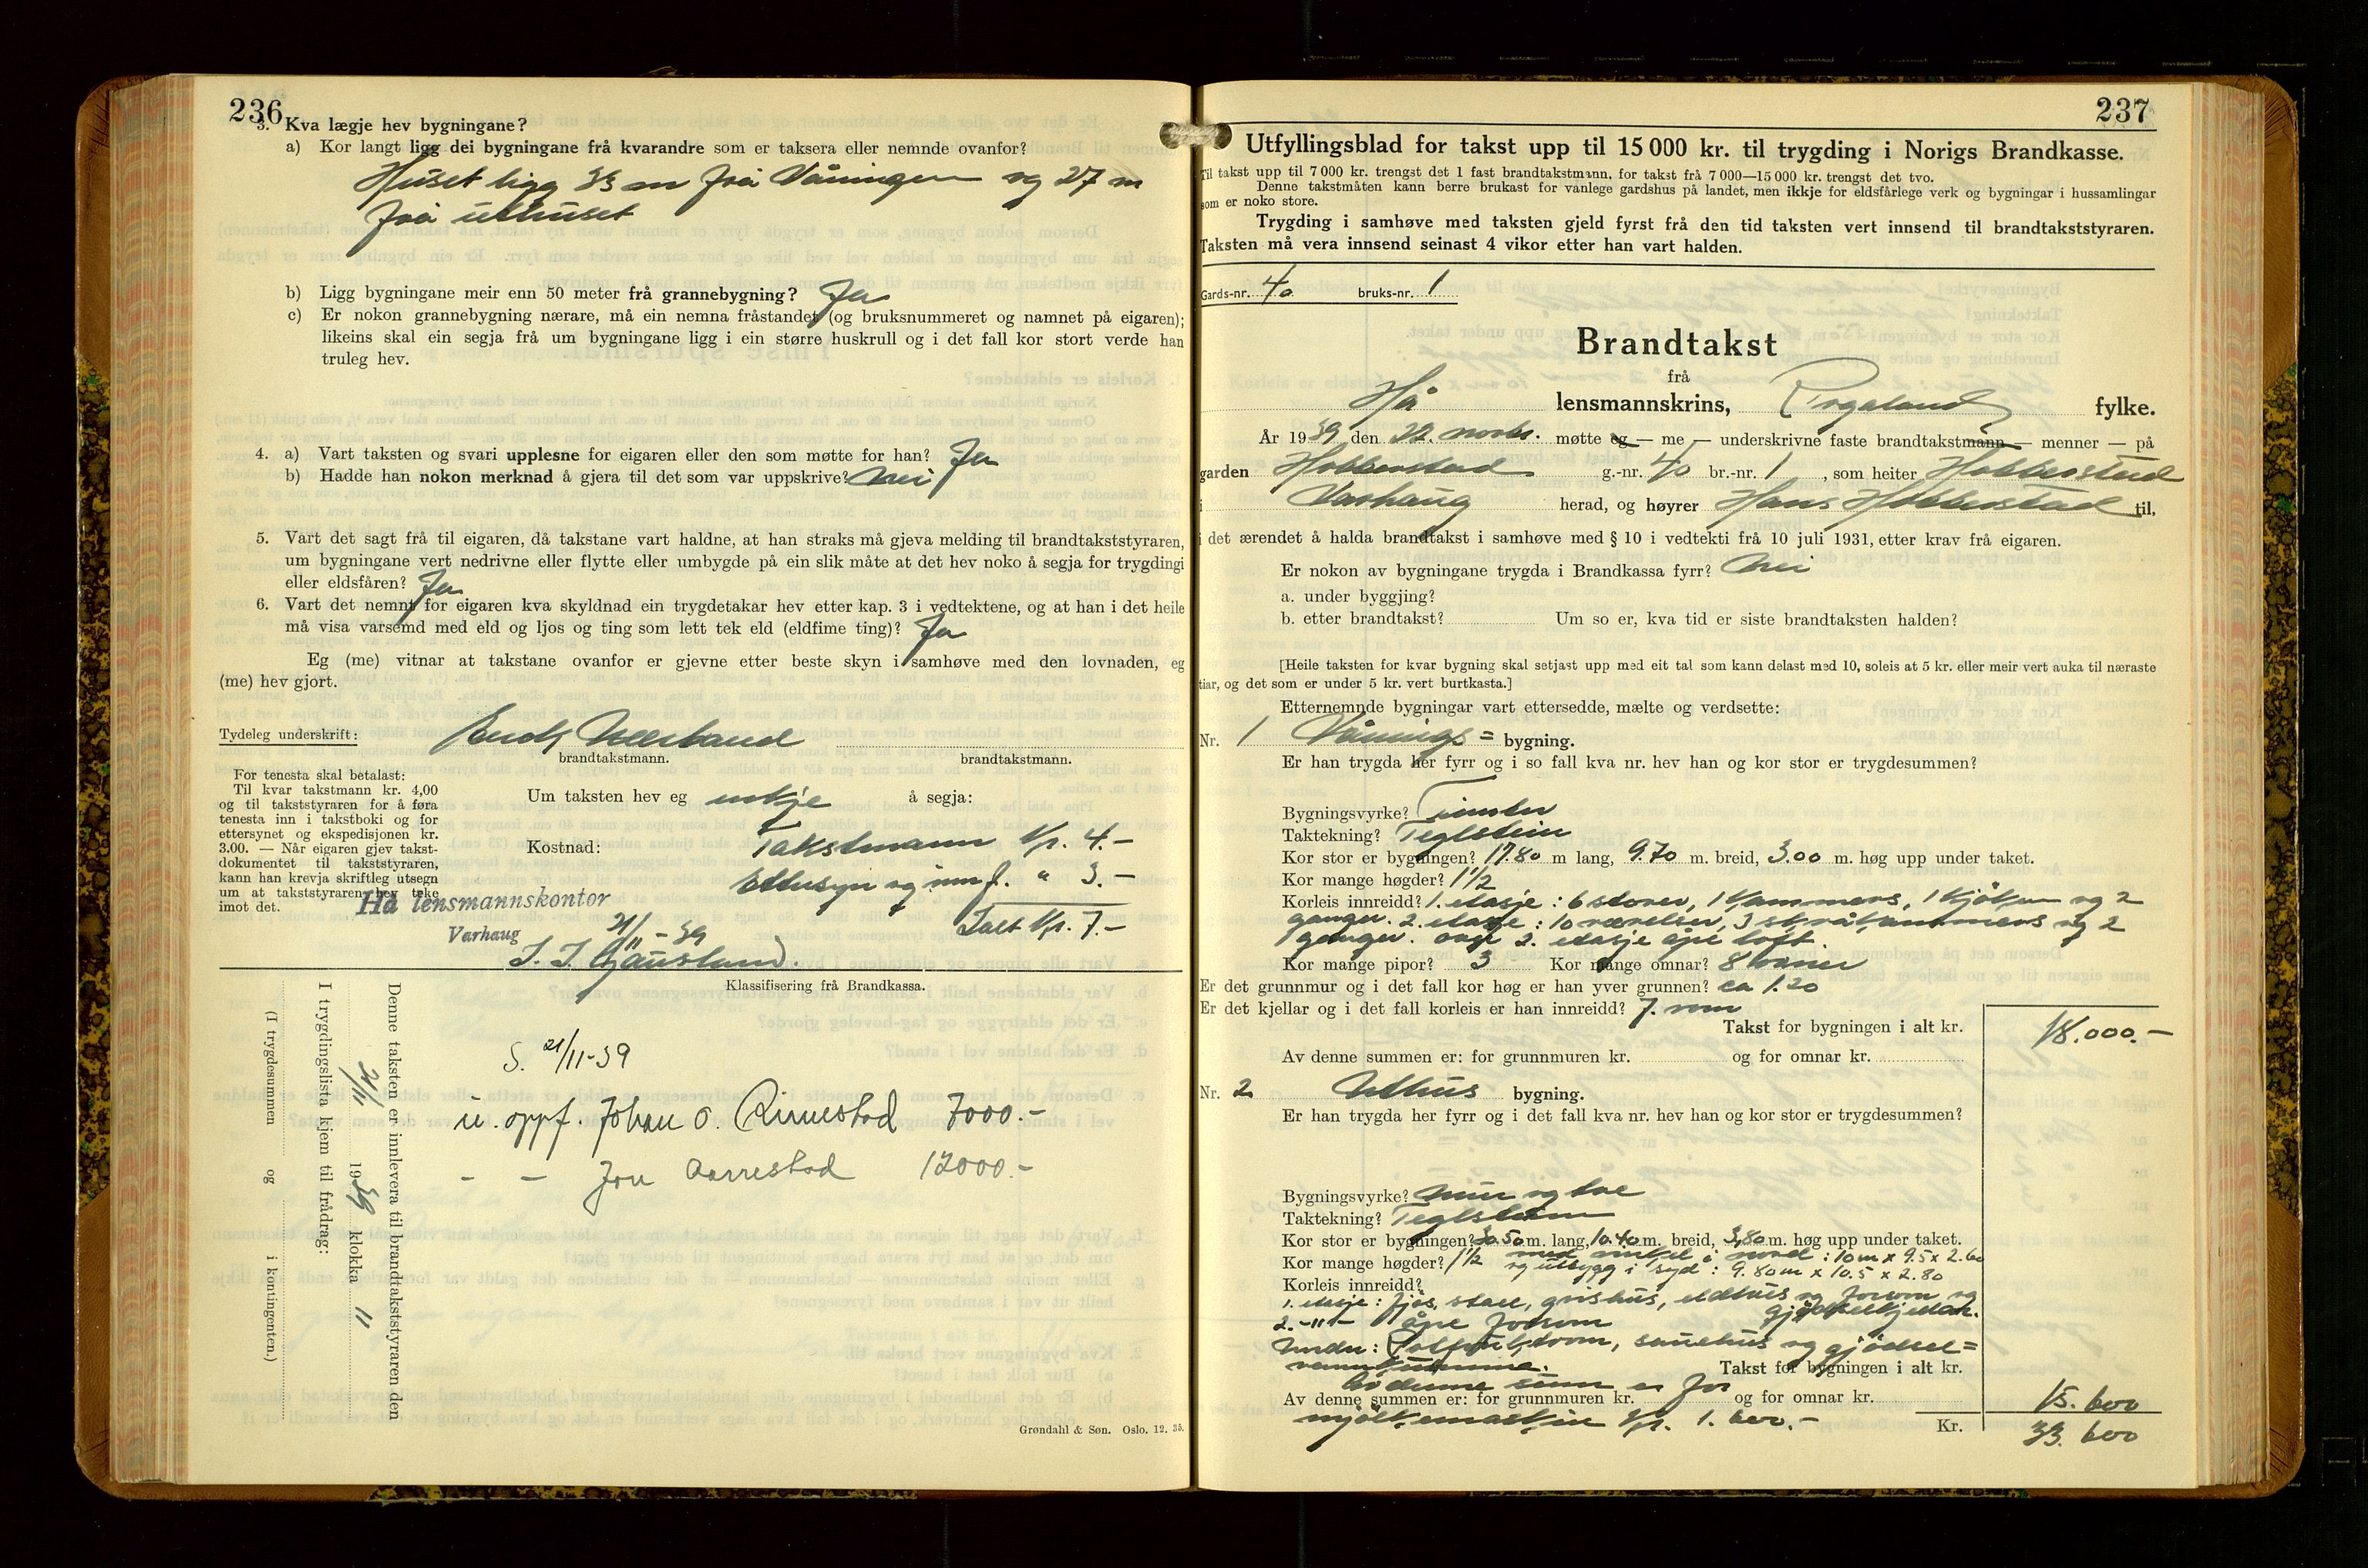 236
3. Kva lægje hev bygningane?
a) Kor langt ligg dei bygningane frå kvarandre som er taksera eller nemnde ovanfor?
Huset ligg 33 m frå Våningen og 27 m
frå uthuset
b) Ligg bygningane meir enn 50 meter frå grannebygning? Ja
c) Er nokon grannebygning nærare, må ein nemna fråstandet (og bruksnummeret og namnet på eigaren);
likeins skal ein segja frå um bygningane ligg i ein større huskrull og i det fall kor stort verde han
truleg hev.
4. a) Vart taksten og svari upplesne for eigaren eller den som møtte for han? Ja
b) Hadde han nokon merknad å gjera til det som var uppskrive? Nei
5. Vart det sagt frå til eigaren, då takstane vart haldne, at han straks må gjeva melding til brandtakststyraren,
um bygningane vert nedrivne eller flytte eller umbygde på ein slik måte at det hev noko å segja for trygdingi
eller eldsfåren? Ja
6. Vart det nemnt for eigaren kva skyldnad ein trygdetakar hev etter kap. 3 i vedtektene, og at han i det heile
må visa varsemd med eld og ljos og ting som lett tek eld (eldfime ting)? Ja
Eg (me) vitnar at takstane ovanfor er gjevne etter beste skyn i samhøve med den lovnaden, eg
(me) hev gjort.
Tydeleg underskrift:
brandtakstmann. brandtakstmann.
For tenesta skal betalast:
Til kvar takstmann kr. 4,00
og til takststyraren for å føra
tenesta inn i takstboki og for
ettersynet og ekspedisjonen kr.
3.00. — Når eigaren gjev takst-
dokumentet til takststyraren,
kann han krevja skriftleg utsegn
um at takststyraren hev teke
imot det.
Um taksten hev eg inkje å segja:
Kostnad: Takstmann Kr. 4.-
Ettersyn og innf. " 3.-
Ialt Kr. 7.-
Hå lensmannskontor
Varhaug 21/11 - 39
J. J. Gausland.
Klassifisering frå Brandkassa.
S. 21/11-39
u. oppf. Johan O. Rimestad 7000.-
- - Jon Aarrestad 12000.-
Denne taksten er innlevera til brandtakststyraren den
21/11 1939 klokka 11
I trygdingslista kjem til frådrag:
(I trygdesummen og i kontingenten.)
Grøndahl & Søn. Oslo. 12. 35.
237
Utfyllingsblad for takst upp til 15 000 kr. til trygding i Norigs Brandkasse.
Til takst upp til 7 000 kr. trengst det 1 fast brandtakstmann, for takst frå 7 000—15 000 kr. trengst det tvo.
Denne takstmåten kann berre brukast for vanlege gardshus på landet, men ikkje for eldsfårlege verk og bygningar i hussamlingar
som er noko store.
Trygding i samhøve med taksten gjeld fyrst frå den tid taksten vert innsend til brandtakststyraren.
Taksten må vera innsend seinast 4 vikor etter han vart halden.
Gards-nr. 40 bruks-nr. 1
Brandtakst
frå
Hå lensmannskrins, Rogaland fylke.
År 1939 den 22. novbr. møtte eg — me — underskrivne faste brandtakstmann — menner — på
garden Hobberstad g.-nr. 40 br.-nr. 1, som heiter Hobberstad
i Varhaug herad, og høyrer Hans Hobberstad til,
i det ærendet å halda brandtakst i samhøve med § 10 i vedtekti frå 10 juli 1931, etter krav frå eigaren.
Er nokon av bygningane trygda i Brandkassa fyrr? Nei
a. under byggjing?
b. etter brandtakst? Um so er, kva tid er siste brandtaksten halden?
[Heile taksten for kvar bygning skal setjast upp med eit tal som kann delast med 10, soleis at 5 kr. eller meir vert auka til næraste
tiar, og det som er under 5 kr. vert burtkasta.]
Etternemnde bygningar vart ettersedde, mælte og verdsette:
Nr. 1 Vånings= bygning.
Er han trygda her fyrr og i so fall kva nr. hev han og kor stor er trygdesummen?
Bygningsvyrke? Timber
Taktekning? Teglstein
Kor stor er bygningen? 17.80 m lang, 9.70 m. breid, 3.00 m. høg upp under taket.
Kor mange høgder? 1 1/2
Korleis innreidd? 1. etasje: 6 stover, 1 kammers, 1 kjøken og 2
ganger. 2. etasje: 10 værelser, 3 skråkammers og 2
ganger. over 2. etasje åpe loft.
Kor mange pipor? 3 Kor mange omnar? 8 omner
Er det grunnmur og i det fall kor høg er han yver grunnen? ca 1.20
Er det kjellar og i det fall korleis er han innreidd? 7. rom
Takst for bygningen i alt kr. 18.000.-
Av denne summen er: for grunnmuren kr. og for omnar kr.
Nr. 2 Uthus bygning.
Er han trygda her fyrr og i det fall kva nr. hev han og kor stor er trygdesummen?
Bygningsvyrke? mur og tre
Taktekning? Teglstein
Kor stor er bygningen? 30.50 m. lang, 10.40 m. breid, 3,80 m. høg upp under taket.
Kor mange høgder? 1 1/2 med vinkel i nord: 10 m x 9.5 x 2.60
og utbygg i syd: 9.80 m x 10.5 x 2.80
Korleis innreidd?
1. etasje: fjøs, stall, grishus, eldhus og forrom og
gjødselkjellar.
2. -"- åpe forrom
Under: Potetkjelrom, sauehus og gjødsel=
Takst for bygningen i alt kr. 15.600
Av denne sum er for
Av denne summen er: for grunnmuren kr. og for omnar kr.
mjølkemaskin Kr. 1.600.-
Kr. 33.600